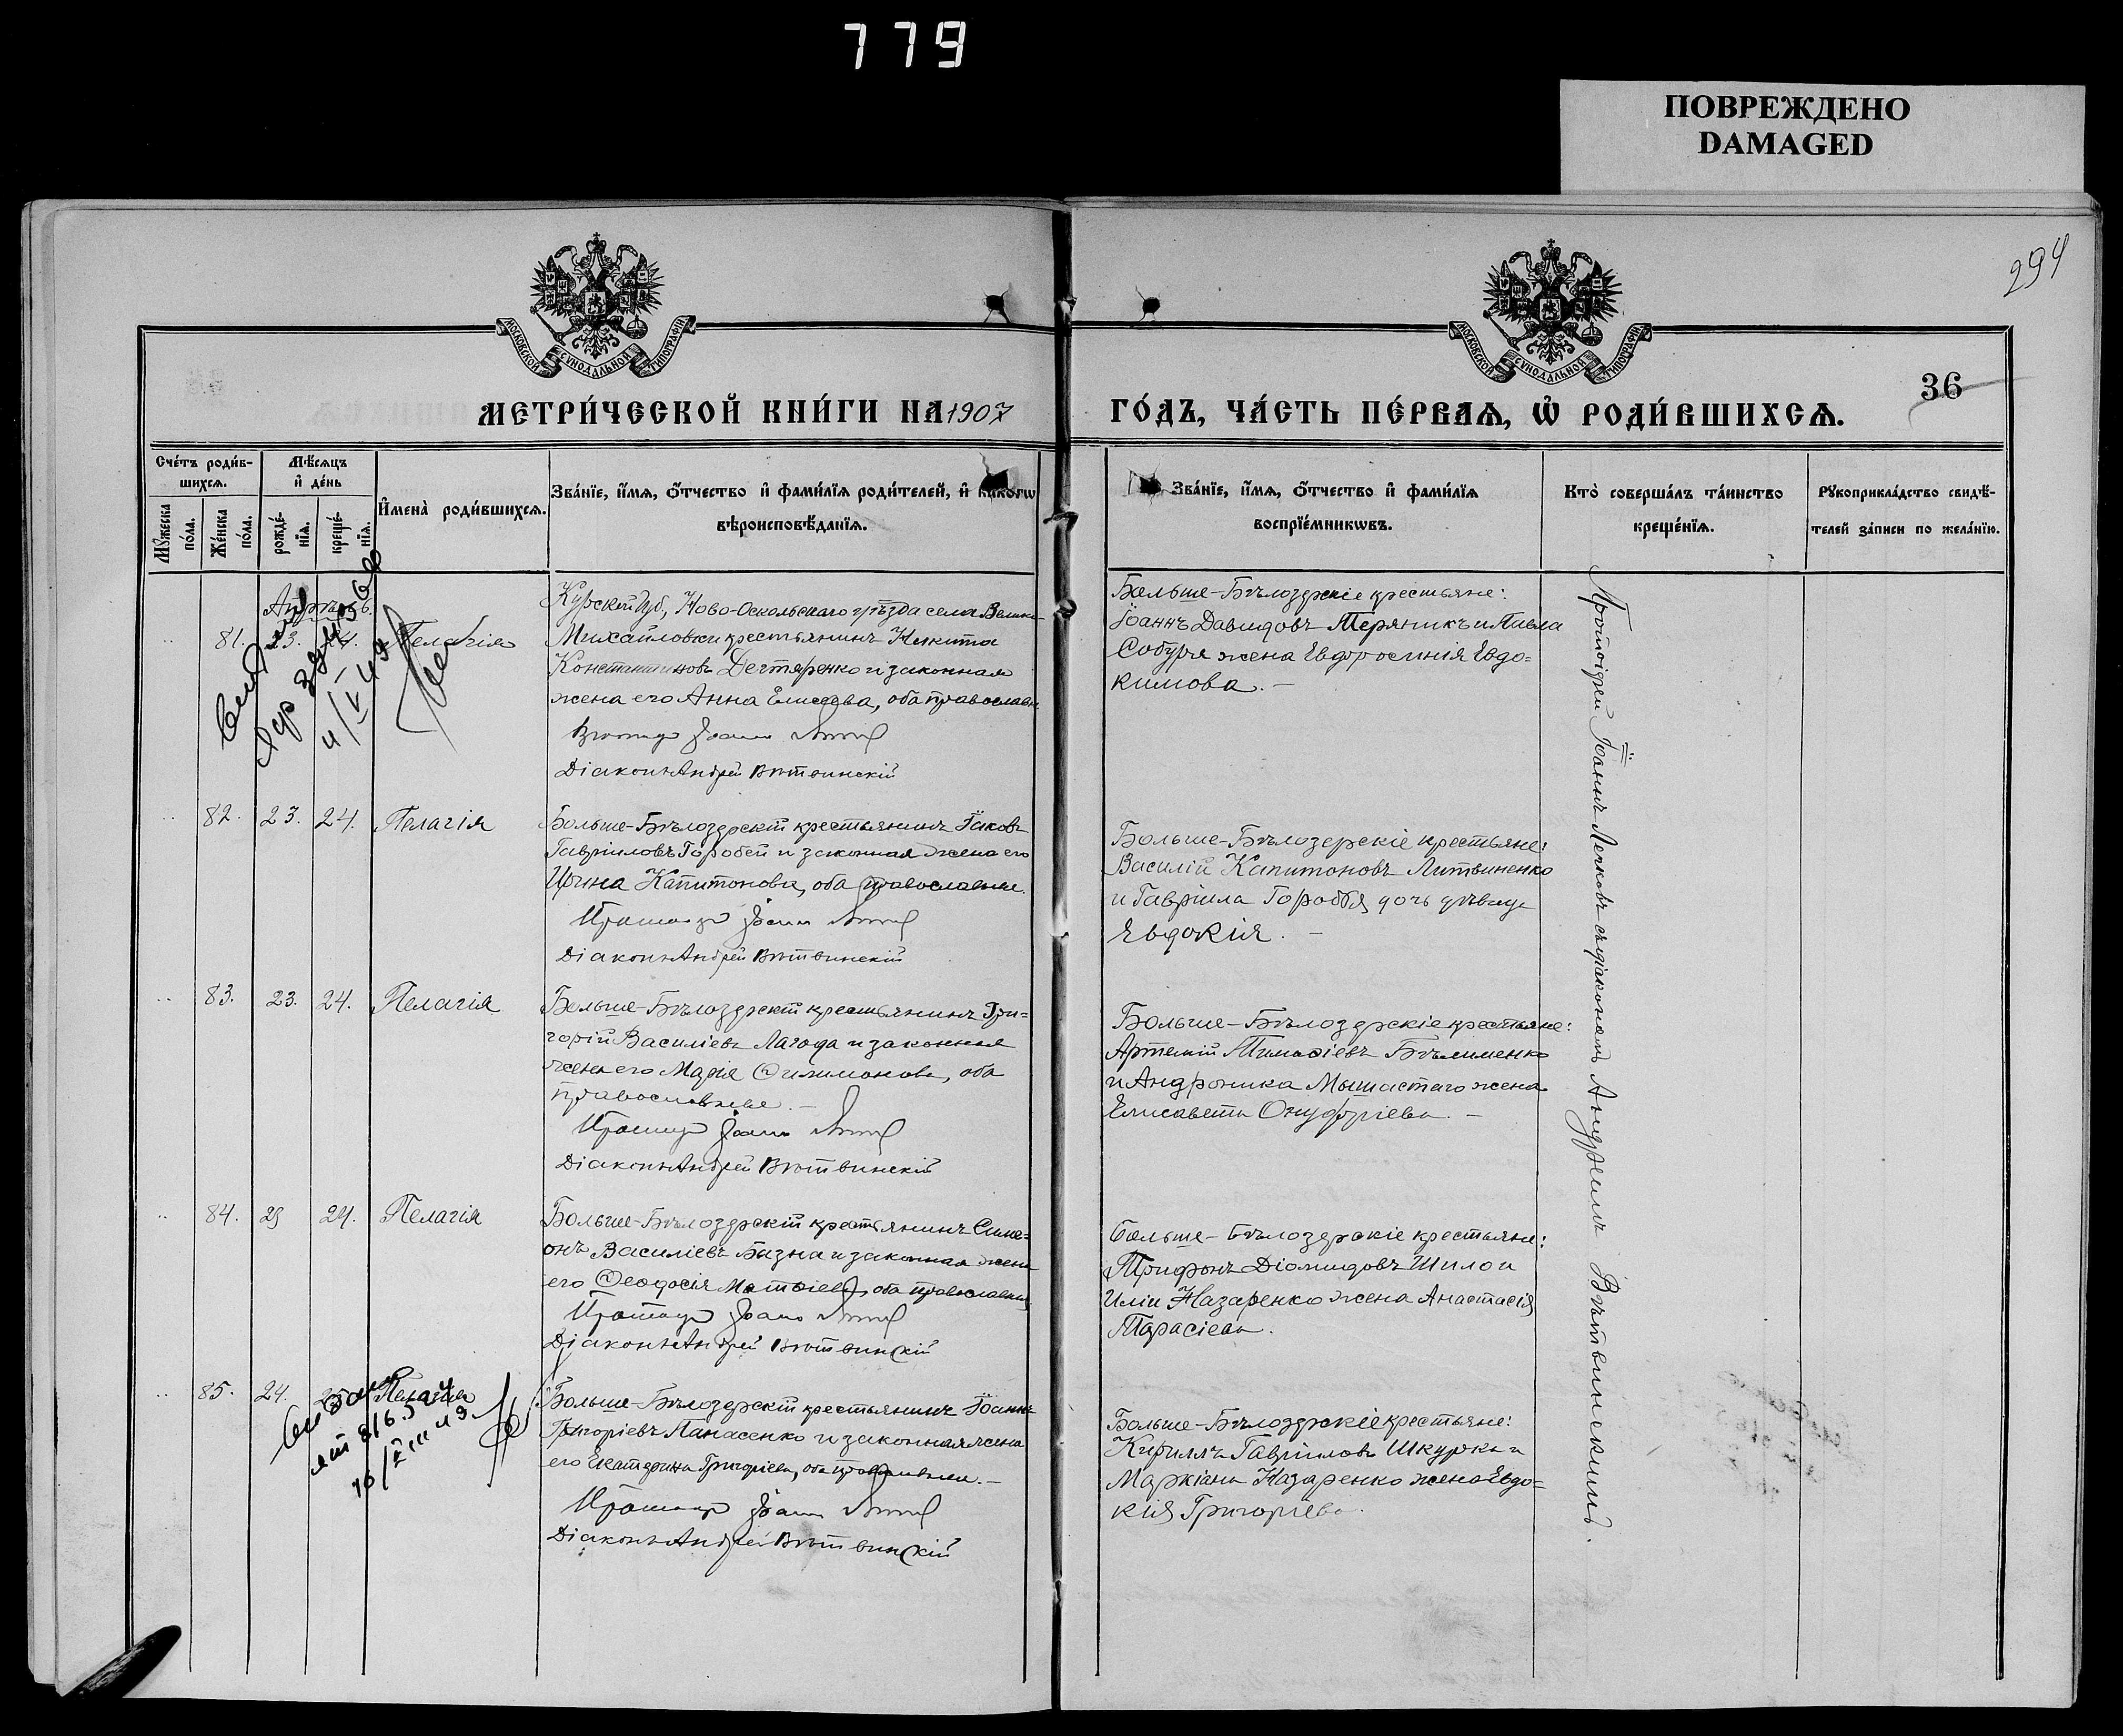 779
ПОВРЕЖДЕНО
DAMAGED
294
МОСКОВСКОЙ СѴНОДАЛЬНОЙ ТИПОГРАФІИ
МОСКОВСКОЙ СѴНОДАЛЬНОЙ ТИПОГРАФІИ
36
МЕТРИ́ЧЕСКОЙ КНИ́ГИ НА 1907
ГО́ДЪ, ЧА́СТЬ ПЕ́РВАѦ, Ѡ҆ РОДИ́ВШИХСѦ.
Сче́тъ роди́в-
шихсѧ.
Мꙋ́жеска по́ла.
Же́нска по́ла.
Мѣ́сѧцъ
и҆ де́нь
рожде́-
нїѧ.
креще́-
нїѧ.
И҆мена̀ роди́вшихсѧ.
Зва́нїе, и҆́мѧ, ѻ҆́тчество и҆ фами́лїѧ роди́телей, и҆ како́гѡ
вѣроисповѣ́данїѧ.
Зва́нїе, и҆́мѧ, ѻ҆́тчество и҆ фами́лїѧ
воспрїе́мникѡвъ.
Кто̀ соверша́лъ та́инство
креще́нїѧ.
Рꙋкоприкла́дство свидѣ́-
телей за́писи по жела́нїю.
Апрѣль.
81. 23. 24. Пелагія
Курской губ., Ново-Оскольскаго уѣзда села Велико-
Михайловки крестьянинъ Никита
Константиновъ Дегтяренко и законная
жена его Анна Елисеева, оба православн.
Діаконъ Андрей Вѣтвинскій
Больше-Бѣлозерскіе крестьяне:
Іоаннъ Давидовъ Теряникъ и Павла
Собура жена Евфросинія Евдо-
кимова. —
82. 23. 24. Пелагія
Больше-Бѣлозерскій крестьянинъ Іаковъ
Гавріиловъ Горобей и законная жена его
Ирина Капитонова, оба православные.
Діаконъ Андрей Вѣтвинскій
Больше-Бѣлозерскіе крестьяне:
Василій Капитоновъ Литвиненко
и Гавріила Горобья дочь дѣвица
Евдокія. —
83. 23. 24. Пелагія
Больше-Бѣлозерскій крестьянинъ Гри-
горій Василіевъ Лагода и законная
жена его Марія Филимонова, оба
православные. —
Діаконъ Андрей Вѣтвинскій
Больше-Бѣлозерскіе крестьяне:
Артемій Тимофіевъ
и Андроника Мышастаго жена
Елисавета Онуфріева. —
84. 23 24. Пелагія
Больше-Бѣлозерскій крестьянинъ Симе-
онъ Василіевъ Базна и законная жена
его Ѳеодосія Матѳіева, оба православные
Діаконъ Андрей Вѣтвинскій
Больше-Бѣлозерскіе крестьяне:
Трифонъ Діомидовъ Шило и
Иліи Назаренко жена Анастасія
Тарасіева.
85. 24. 25. Пелагія
Больше-Бѣлозерскій крестьянинъ Іоаннъ
Григоріевъ Панасенко и законная жена
его Екатерина Григоріева, оба православные. —
Діаконъ Андрей Вѣтвинскій
Больше-Бѣлозерскіе крестьяне:
Кириллъ Гавріиловъ Шкурка и
Маркіана Назаренко жена Евдо-
кія Григоріева.
Протоіерей Іоаннъ съ діакономъ Андреемъ Вѣтвинскимъ.